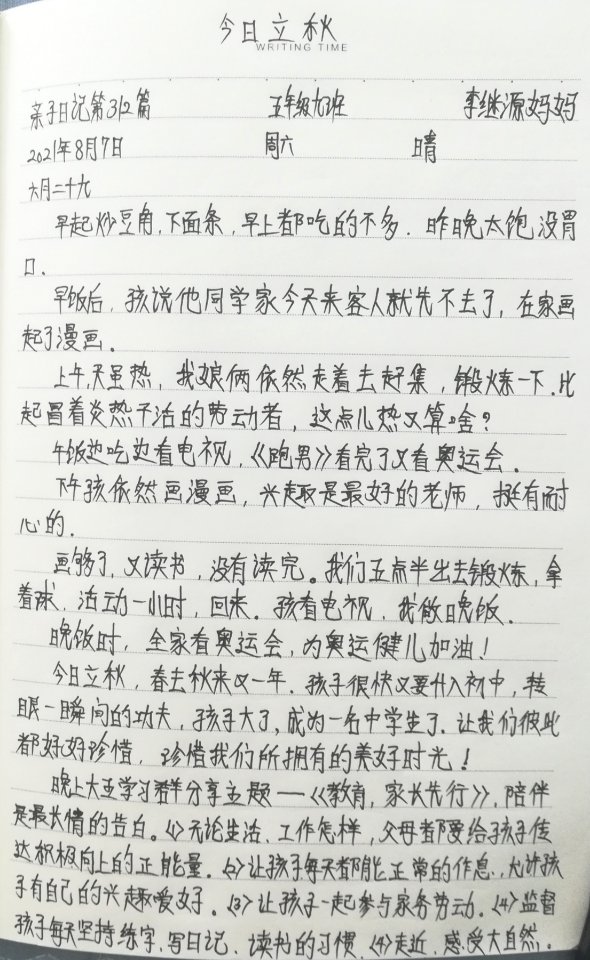 今日立秋
WRITING TIME
亲子日记第312篇 五年级九班 李继源妈妈
2021年8月7日 周六 晴
六月二十九
早起炒豆角,下面条,早上都吃的不多.昨晚太饱没胃
口.
早饭后,孩说他同学家今天来客人就先不去了,在家画
起了漫画.
上午,天虽热,我娘俩依然走着去赶集,锻炼一下.比
起冒着炎热干活的劳动者,这点儿热又算啥?
午饭边吃边看电视,《跑男》看完了又看奥运会.
下午孩依然画漫画,兴趣是最好的老师,挺有耐
心的.
画够了,又读书,没有读完。我们五点半出去锻炼,拿
着球,活动一小时,回来.孩看电视,我做晚饭.
晚饭时,全家看奥运会,为奥运健儿加油!
今日立秋,春去秋来又一年.孩子很快又要升入初中,转
眼一瞬间的功夫,孩子大了,成为一名中学生了.让我们彼此
都好好珍惜,珍惜我们所拥有的美好时光!
晚上大五学习群分享主题——《教育,家长先行》,陪伴
是最长情的告白。(1)无论生活、工作怎样,父母都要给孩子传
达积极向上的正能量.(2)让孩子每天都能正常的作息,允许孩
子有自己的兴趣爱好.(3)让孩子一起参与家务劳动.(4)监督
孩子每天坚持练字,写日记、读书的习惯.(4)走近、感受大自然。